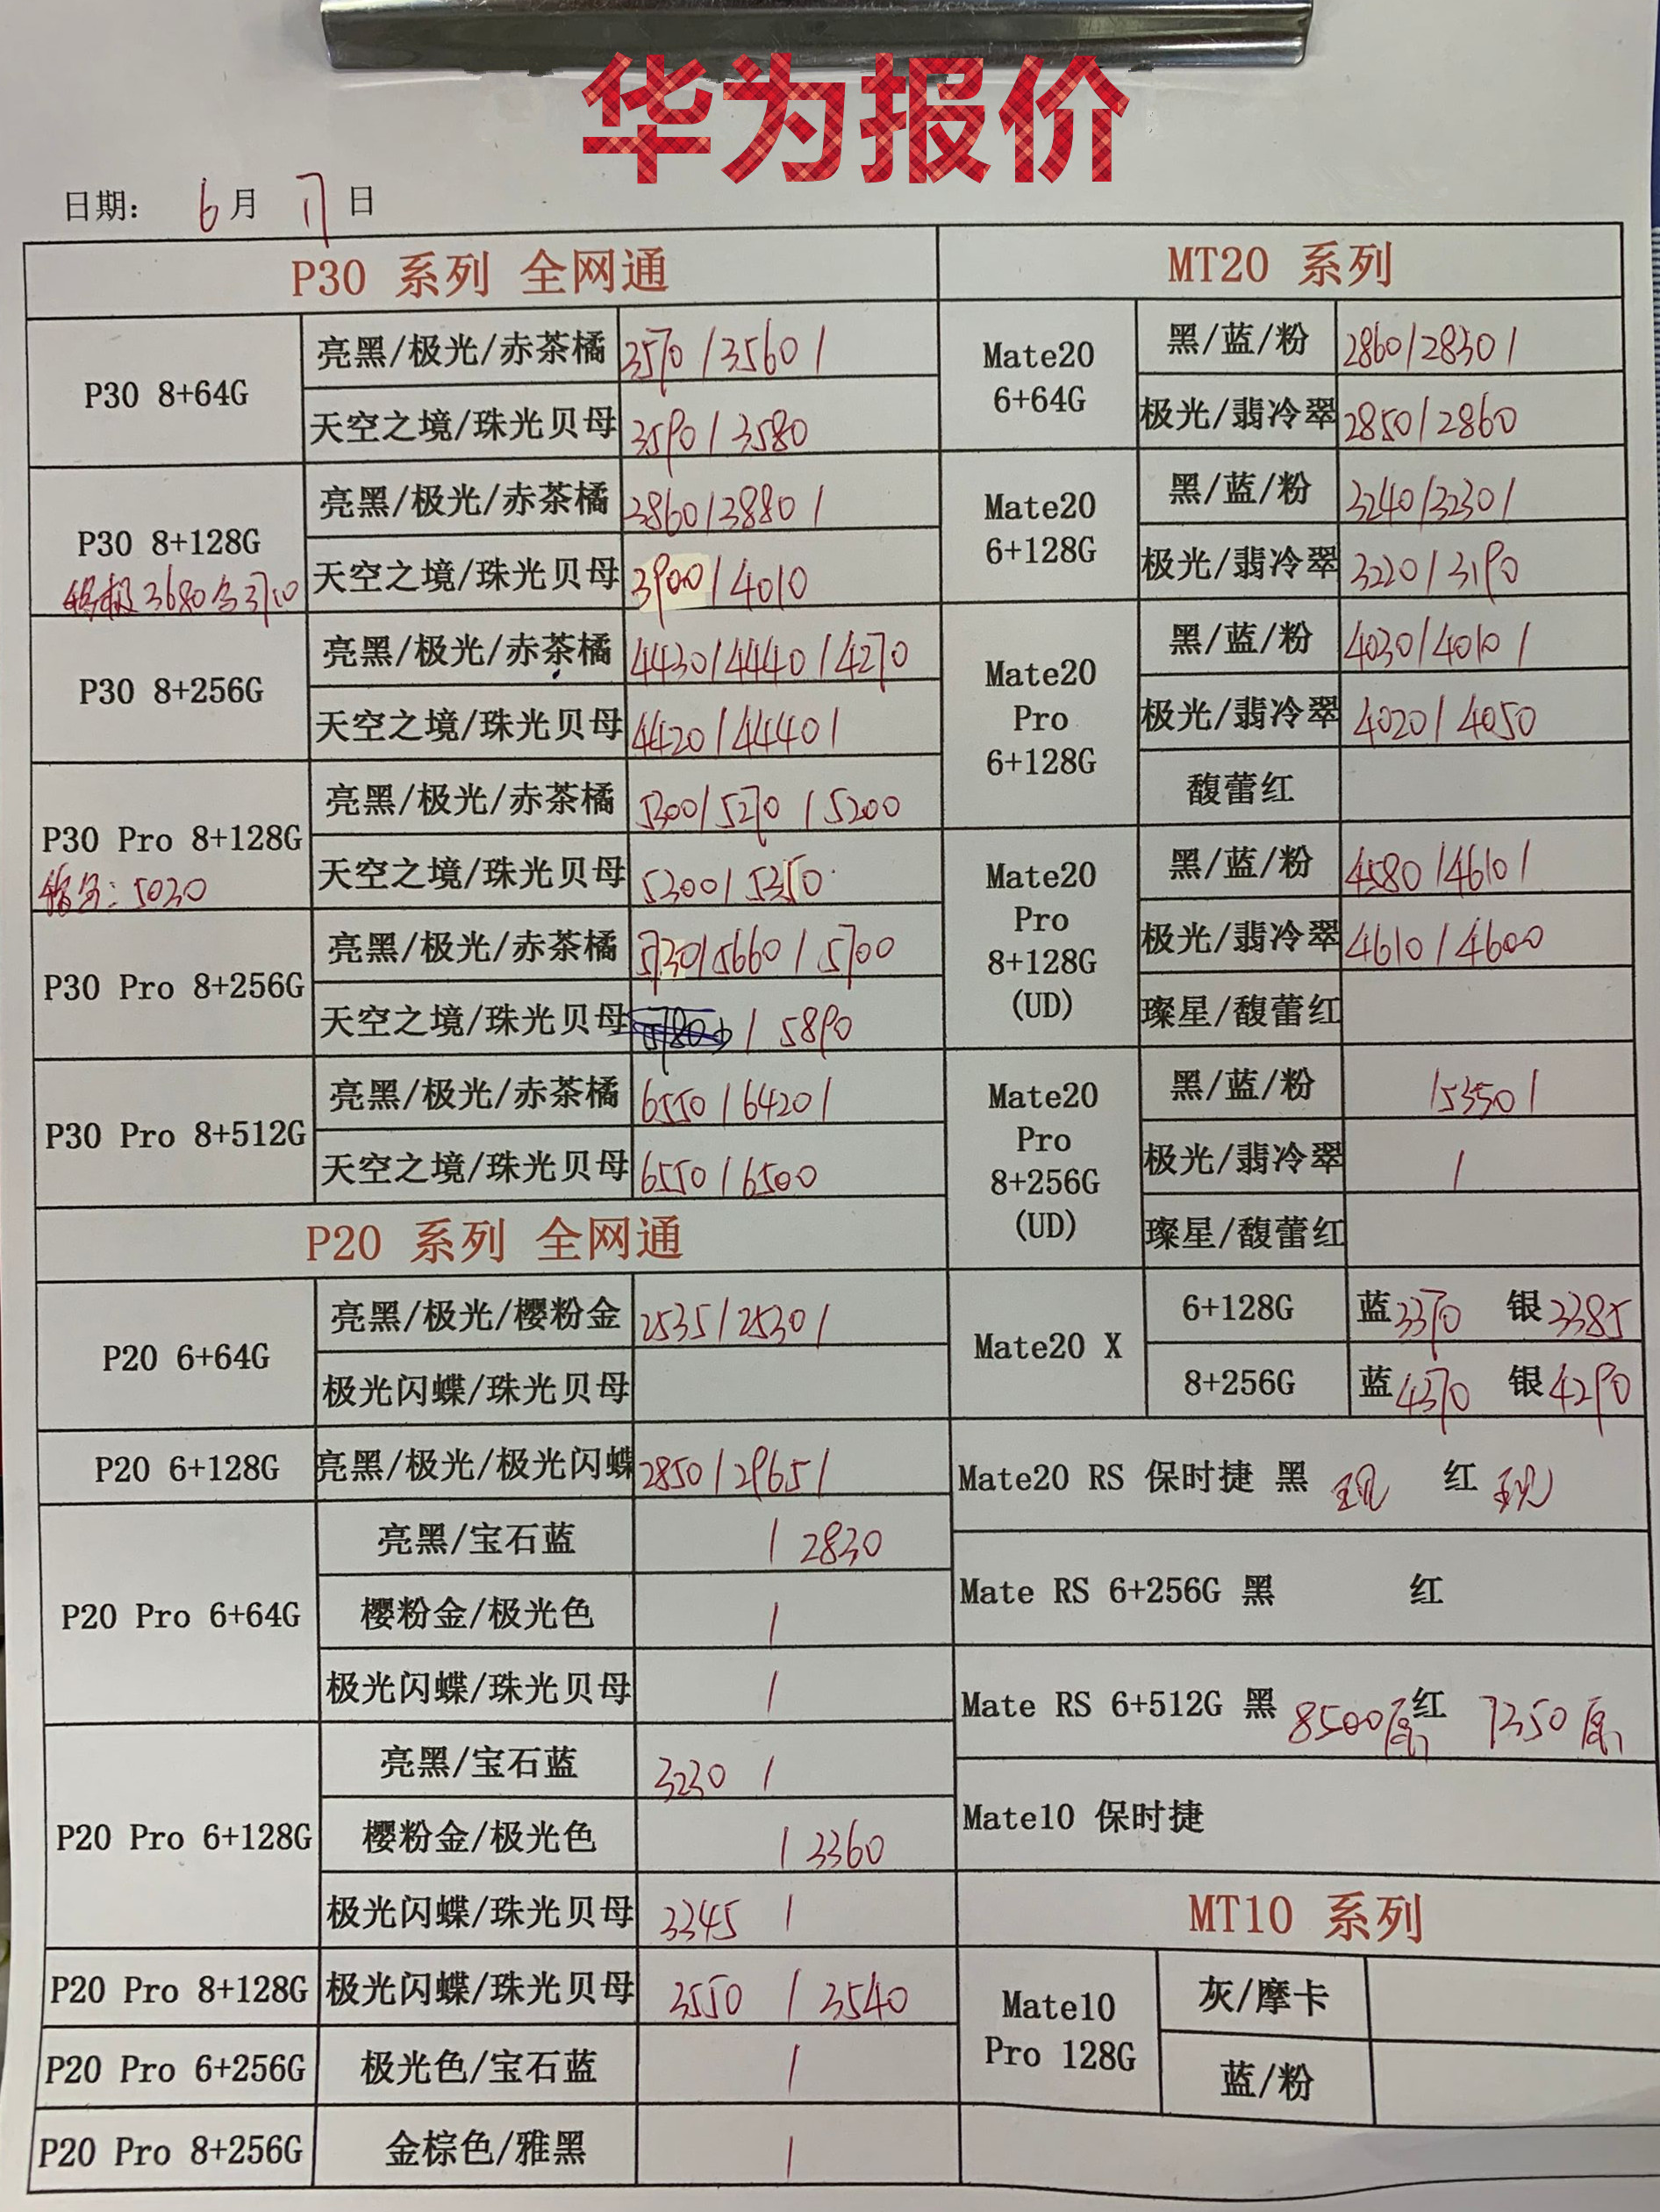 华为报价
日期: 6月17日
P30 系列 全网通
P30 8+64G
亮黑/极光/赤茶橘 3570/3560/
天空之境/珠光贝母 3590/3580
P30 8+128G
3680 3710
亮黑/极光/赤茶橘 3860/3880/
天空之境/珠光贝母 3900/4010
P30 8+256G
亮黑/极光/赤茶橘 4430/4440/4270
天空之境/珠光贝母 4420/4440/
P30 Pro 8+128G
: 5030
亮黑/极光/赤茶橘 5300/5270/5200
天空之境/珠光贝母 5300/5350
P30 Pro 8+256G
亮黑/极光/赤茶橘 5730/5660/5700
天空之境/珠光贝母 / 5890
P30 Pro 8+512G
亮黑/极光/赤茶橘 6550/6420/
天空之境/珠光贝母 6550/6500
P20 系列 全网通
P20 6+64G
亮黑/极光/樱粉金 2535/2530/
极光闪蝶/珠光贝母
P20 6+128G
亮黑/极光/极光闪蝶 2850/2965/
P20 Pro 6+64G
亮黑/宝石蓝 / 2830
樱粉金/极光色 /
极光闪蝶/珠光贝母 /
P20 Pro 6+128G
亮黑/宝石蓝 3230 /
樱粉金/极光色 / 3360
极光闪蝶/珠光贝母 3345 /
P20 Pro 8+128G 极光闪蝶/珠光贝母 3550 / 3540
P20 Pro 6+256G 极光色/宝石蓝 /
P20 Pro 8+256G 金棕色/雅黑 /
MT20 系列
Mate20
6+64G
黑/蓝/粉 2860/2830/
极光/翡冷翠 2850/2860
Mate20
6+128G
黑/蓝/粉 3240/3230/
极光/翡冷翠 3220/3190
Mate20
Pro
6+128G
黑/蓝/粉 4030/4010/
极光/翡冷翠 4020/4050
馥蕾红
Mate20
Pro
8+128G
(UD)
黑/蓝/粉 4580/4610/
极光/翡冷翠 4610/4600
璨星/馥蕾红
Mate20
Pro
8+256G
(UD)
黑/蓝/粉 /5350/
极光/翡冷翠 /
璨星/馥蕾红
Mate20 X
6+128G 蓝3370 银3385
8+256G 蓝4370 银4290
Mate20 RS 保时捷 黑 现 红 现
Mate RS 6+256G 黑 红
Mate RS 6+512G 黑 8500 红 7350
Mate10 保时捷
MT10 系列
Mate10
Pro 128G
灰/摩卡
蓝/粉